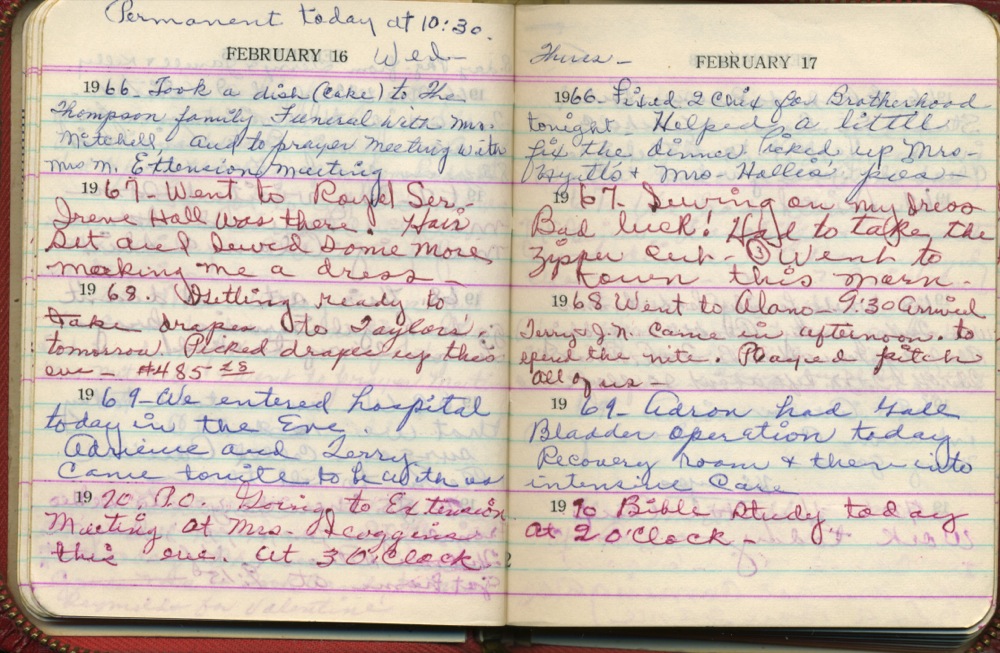 Permanent today at 10:30.
FEBRUARY 16 Wed-
1966- Took a dish (cake) to the
Thompson family Funeral with Mrs.
Mitchell, and to prayer meeting with
Mrs M. Extension meeting
1967- Went to Royal Ser-
Irene Hall was there. Hair
Set and Sewed some more
making me a dress-
1968. Getting ready to
take drapes to Taylors'.
tomorrow. Picked drapes up this
eve-
1969-We entered hospital
today in the Eve.
Adriene and Terry
Came tonite to be with us
1970. P.O. Going to Extension
Meeting at Mrs. Scoggins
this eve. at 3 O'Clock
Thurs- FEBRUARY 17
1966- Fixed 2 for Brotherhood
tonight Helped a little
fix the dinner. Picked up Mrs-
+ Mrs- Hollis' pies-
1967. Sewing on my dress
Bad luck! Had to take the
Zipper out- ③ Went to
town this morn.
1968 Went to Alano- 9:30 Arrived
Terry & J.N. came in afternoon. to
spend the nite. Played pitch
All of us-
1969- Adron had Gall
Bladder operation today
Recovery room & then into
intensive Care
1970 Bible Study today
at 2 O'Clock-